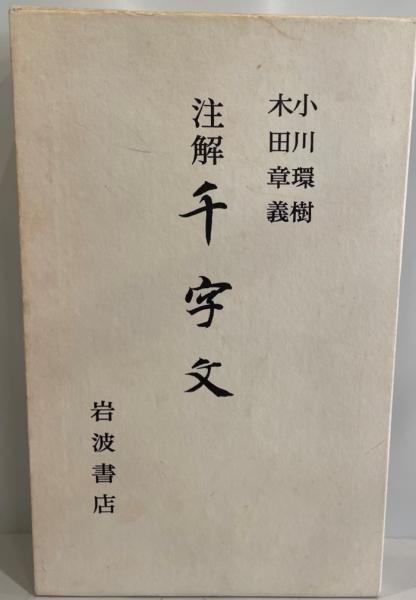 小川環樹
木田章義
注解 千字文
岩波書店